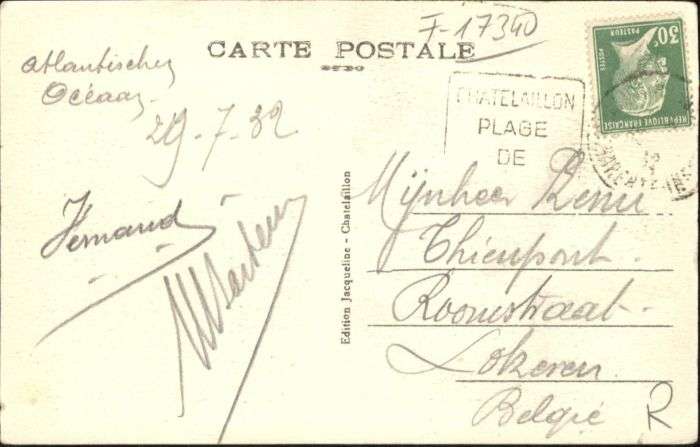 F-17340
CARTE POSTALE
Atlantischen
Océaan
29-7-32
Fernand
Edition Jacqueline - Chatelaillon
30c
PASTEUR
POSTES
REPUBLIQUE FRANÇAISE
CHATELAILLON
PLAGE
DE
Mijnheer Remi
Thienpont
Roomstraat
Lokeren
België
R